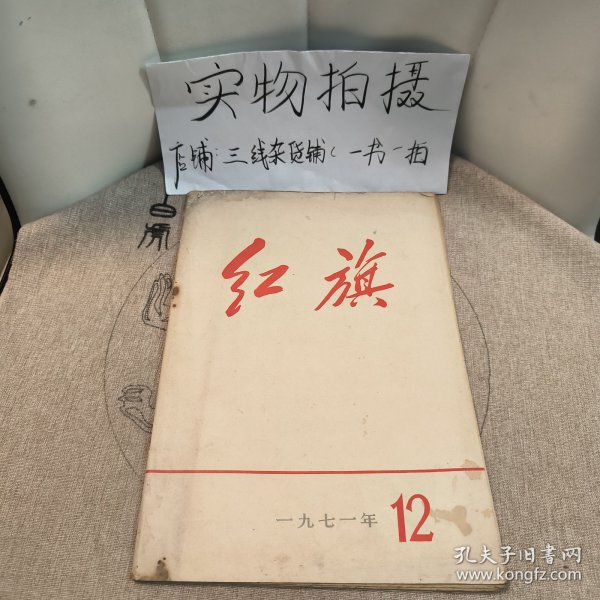 实物拍摄
店铺:三线杂货铺(一书一拍
白虎
红旗
一九七一年 12
孔夫子旧书网
www.kongfz.com